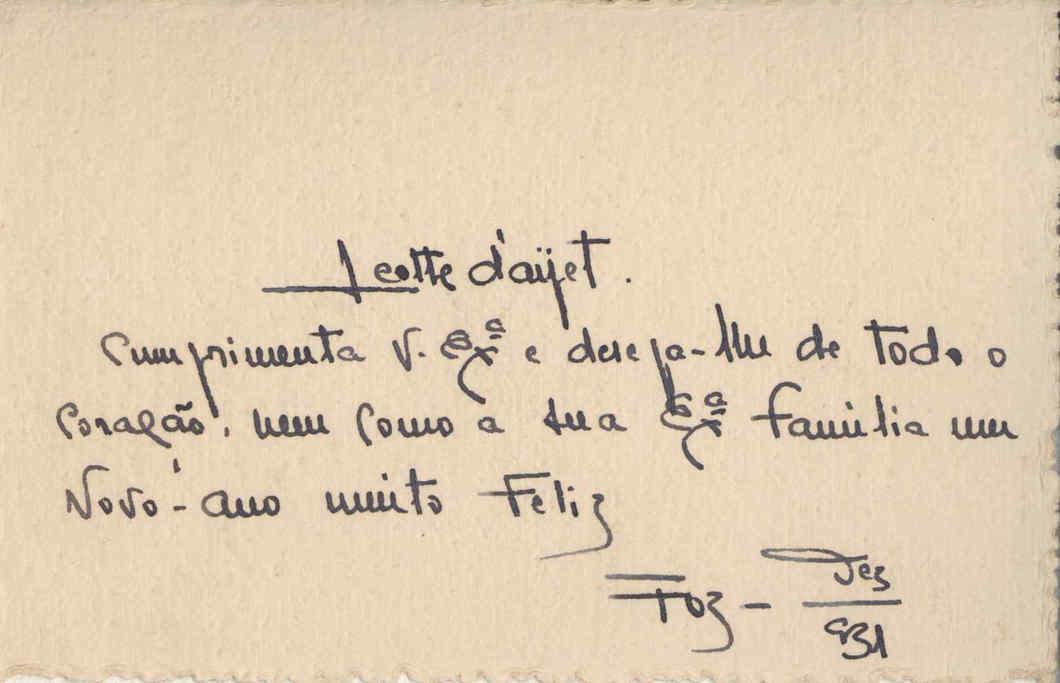 Leotte d'aijet.
Cumprimenta V. Exª e deseja-lhe de todo o
coração, bem como a sua Exª família um
Novo-ano muito Feliz
Foz - Dez
931